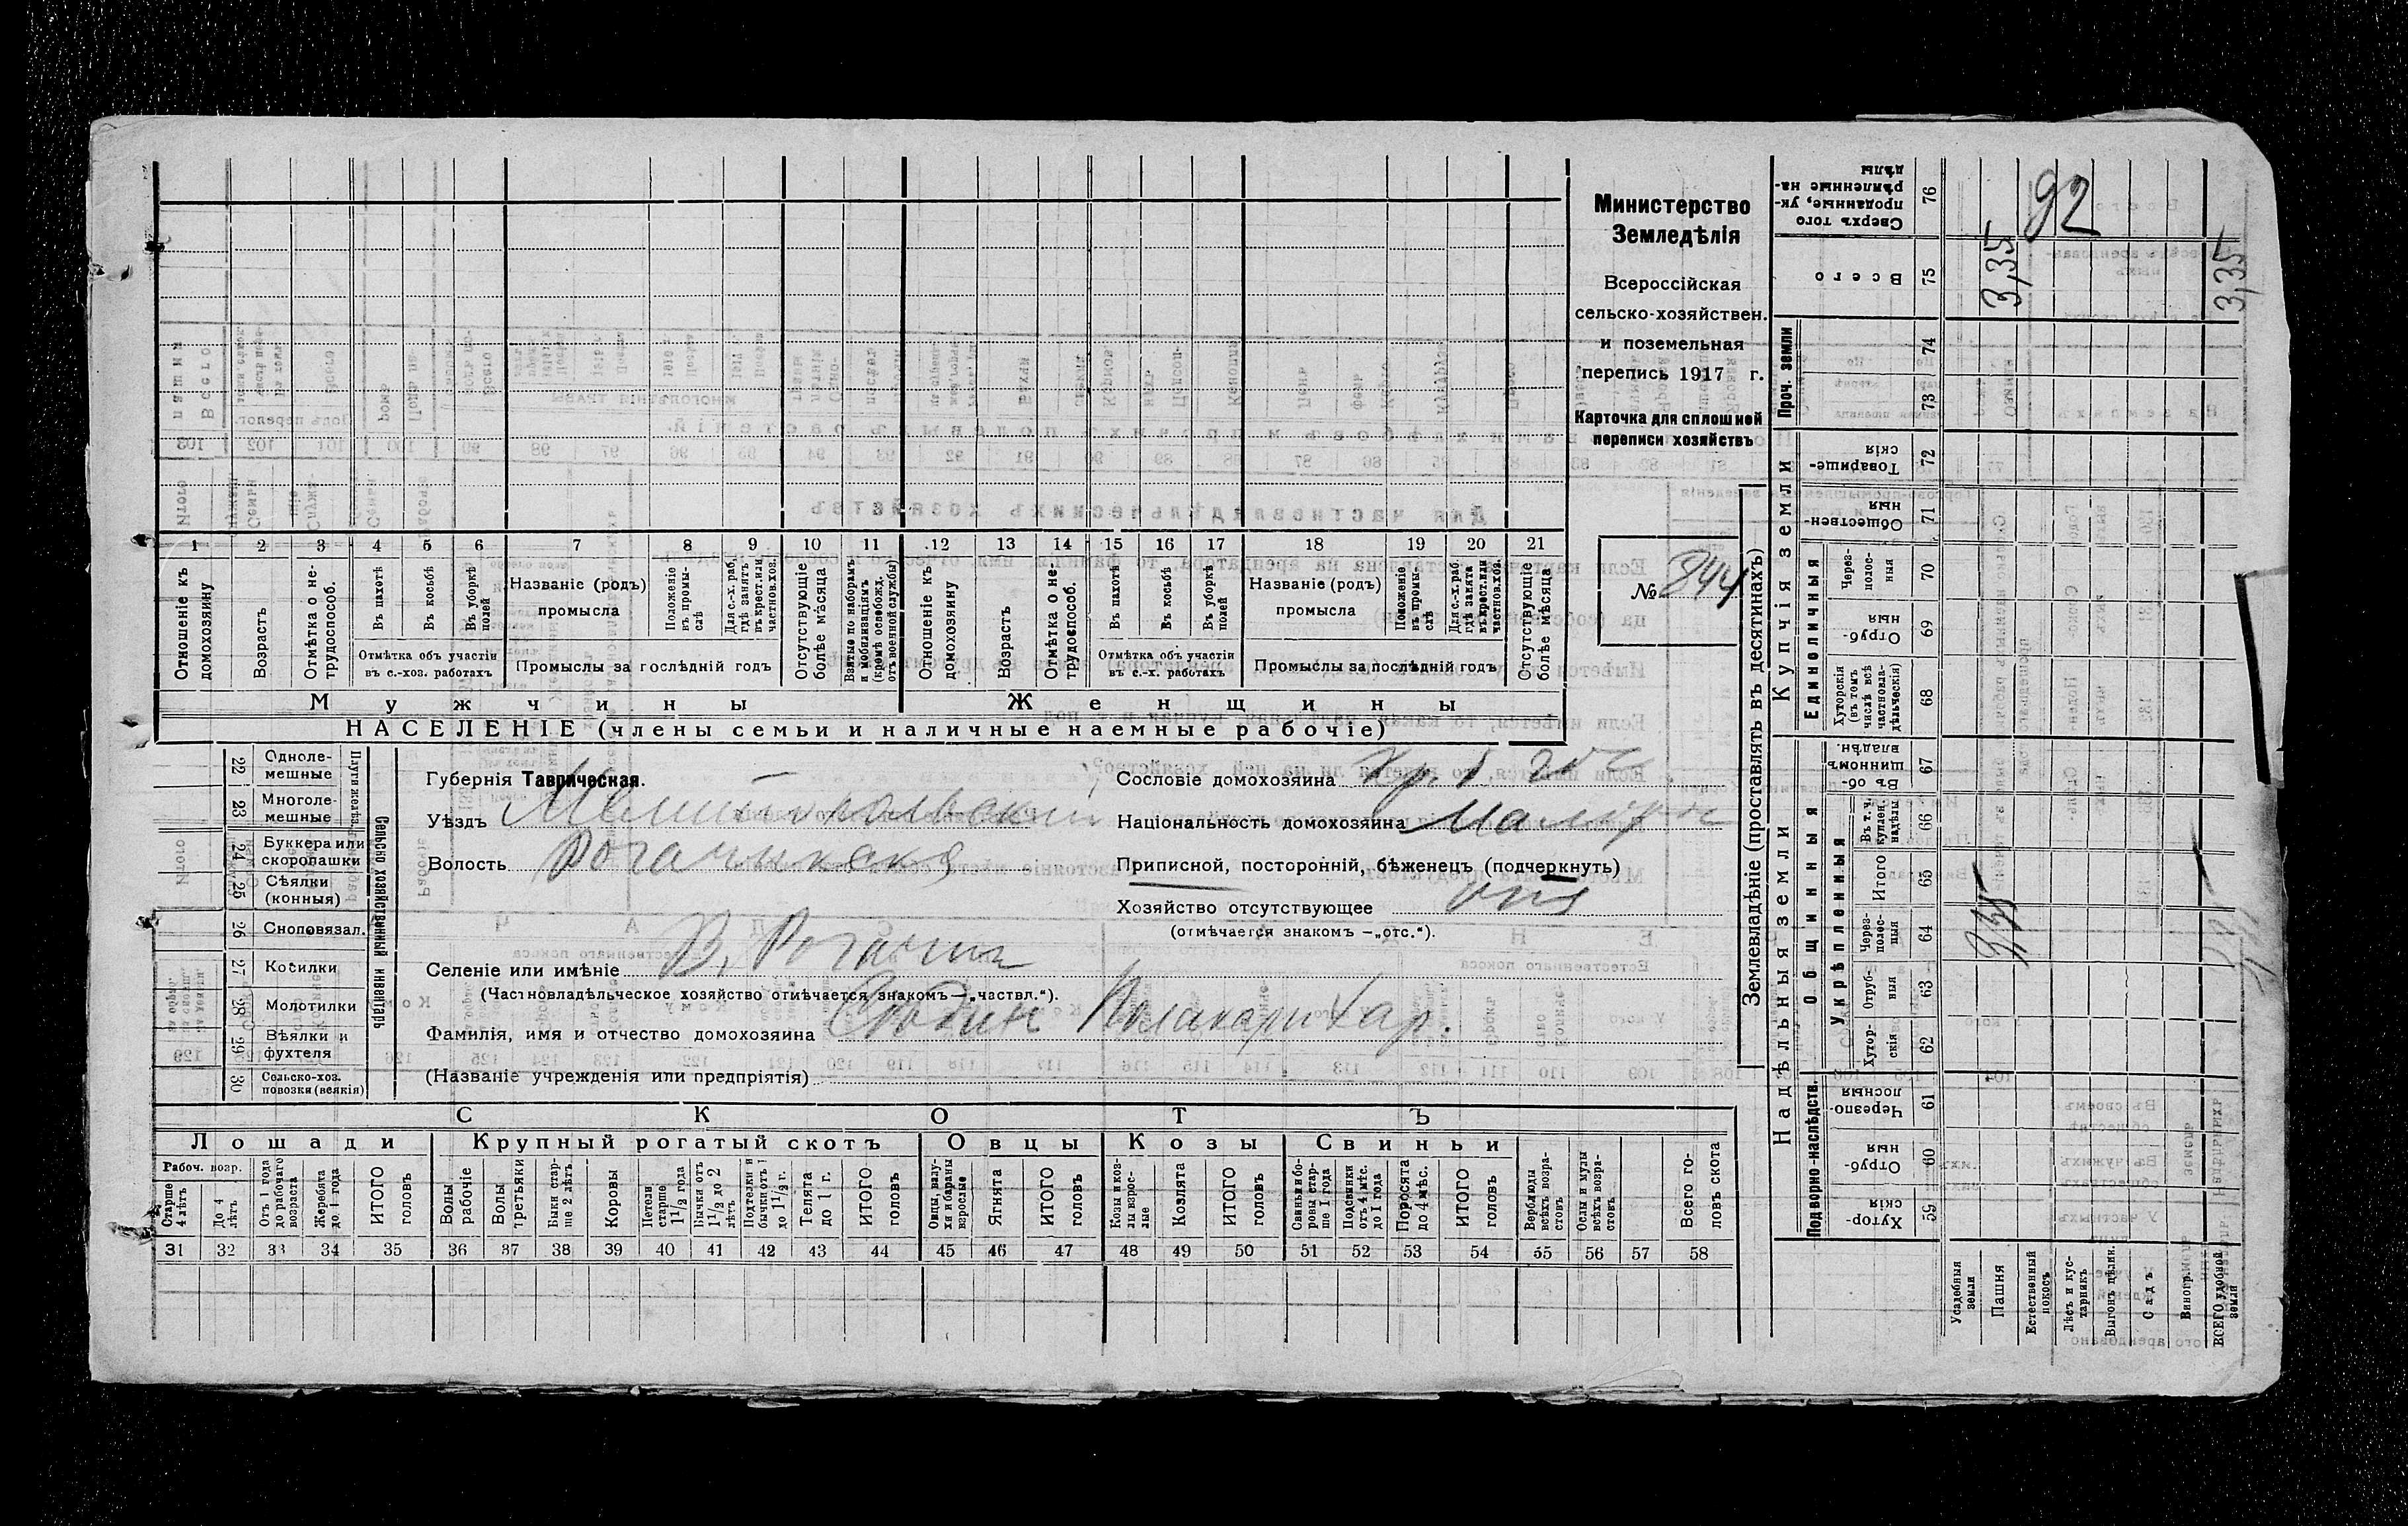 Министерство
Земледѣлія
Всероссійская
сельско-хозяйствен.
и поземельная
перепись 1917 г.
Карточка для сплошной
переписи хозяйствъ
№ 844
1 2 3 4 5 6 7 8 9 10 11 12 13 14 15 16 17 18 19 20 21
Отношеніе къ домохозяину
Возрастъ
Отмѣтка о не-трудоспособ.
Въ пахотѣ
Въ косьбѣ
Въ уборкѣ полей
Отмѣтка объ участіи
въ с.-хоз. работахъ
Названіе (родъ)
промысла
Положеніе въ промы-слѣ
Для с.-х. раб. гдѣ занятъ въ крест. или частнов. хоз.
Промыслы за послѣдній годъ
Отсутствующіе болѣе мѣсяца
Взятые по наборамъ и мобилизаціямъ (кромѣ освобожд. отъ военной службы)
Отношеніе къ домохозяину
Возрастъ
Отмѣтка о не-трудоспособ.
Въ пахотѣ
Въ косьбѣ
Въ уборкѣ полей
Отмѣтка объ участіи
въ с.-х. работахъ
Названіе (родъ)
промысла
Положеніе въ промы-слѣ
Для с.-х. раб. гдѣ занята въ крест. или частнов. хоз.
Промыслы за послѣдній годъ
Отсутствующіе болѣе мѣсяца
Мужчины Женщины
НАСЕЛЕНІЕ (члены семьи и наличные наемные рабочіе)
22 Однолемешные
23 Многолемешные
24 Буккера или скоропашки
25 Сѣялки (конныя)
26 Сноповязал.
27 Косилки
28 Молотилки
29 Вѣялки и фухтеля
30 Сельско-хоз. повозки (всякія)
Сельско хозяйственный инвентарь
Губернія Таврическая.
Уѣздъ Мелитопольский
Волость Рогачикская
Селеніе или имѣніе В. Рогачик
(Частновладѣльческое хозяйство отмѣчается знакомъ—„частвл.“).
Фамилія, имя и отчество домохозяина Поликарп Хар.
(Названіе учрежденія или предпріятія)
Сословіе домохозяина
Національность домохозяина
Приписной, посторонній, бѣженецъ (подчеркнуть)
Хозяйство отсутствующее
(отмѣчается знакомъ —„отс.“).
СКОТЪ
Лошади Крупный рогатый скотъ Овцы Козы Свиньи
Рабоч. возр.
Старше 4 лѣтъ
До 4 лѣтъ
Отъ 1 года до рабочаго возраста
Жеребята до 1 года
ИТОГО головъ
Волы рабочіе
Волы третьяки
Быки старше 2 лѣтъ
Коровы
Нетели старше 1 1/2 года
Бычки отъ 1 1/2 до 2 лѣтъ
Подтелки и бычки отъ 1 до 1 1/2 г.
Телята до 1 г.
ИТОГО головъ
Овцы, валухи и бараны взрослые
Ягнята
ИТОГО головъ
Козы и козлы взрослые
Козлята
ИТОГО головъ
Свиньи и боровы старше 1 года
Подсвинки отъ 4 мѣс. до 1 года
Поросята до 4 мѣс.
ИТОГО головъ
Верблюды всѣхъ возрастовъ
Ослы и мулы всѣхъ возрастовъ
Всего головъ скота
31 32 33 34 35 36 37 38 39 40 41 42 43 44 45 46 47 48 49 50 51 52 53 54 55 56 57 58
Землевладѣніе (проставлять въ десятинахъ)
Надѣльныя земли
Купчія земли
Проч. земли
Подворно-наслѣдств.
Общинныя
Укрѣпленныя
Единоличныя
59 Хуторскія
60 Отрубныя
61 Черезполосныя
62 Хуторскія
63 Отрубныя
64 Черезполосныя
65 Итого
66 Въ т. ч. куплен. надѣлы
67 Въ общинномъ владѣн.
68 Хуторскія (въ томъ числѣ всѣ частновладѣльческія)
69 Отрубныя
70 Черезполосныя
71 Общественныя
72 Товарищескія
73
74
75 Всего
76 Сверхъ того проданные, укрѣпленные надѣлы
Усадебныя земли
Пашня 3,35
Естественный покосъ
Лѣсъ и кустарникъ
Выгонъ цѣлик.
Садъ
Виногр.
ВСЕГО удобной земли 3,35
92